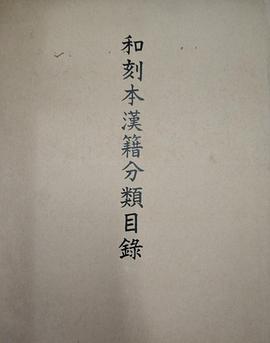 和刻本漢籍分類目錄